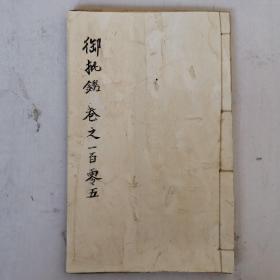 御批鑑 卷之一百零五